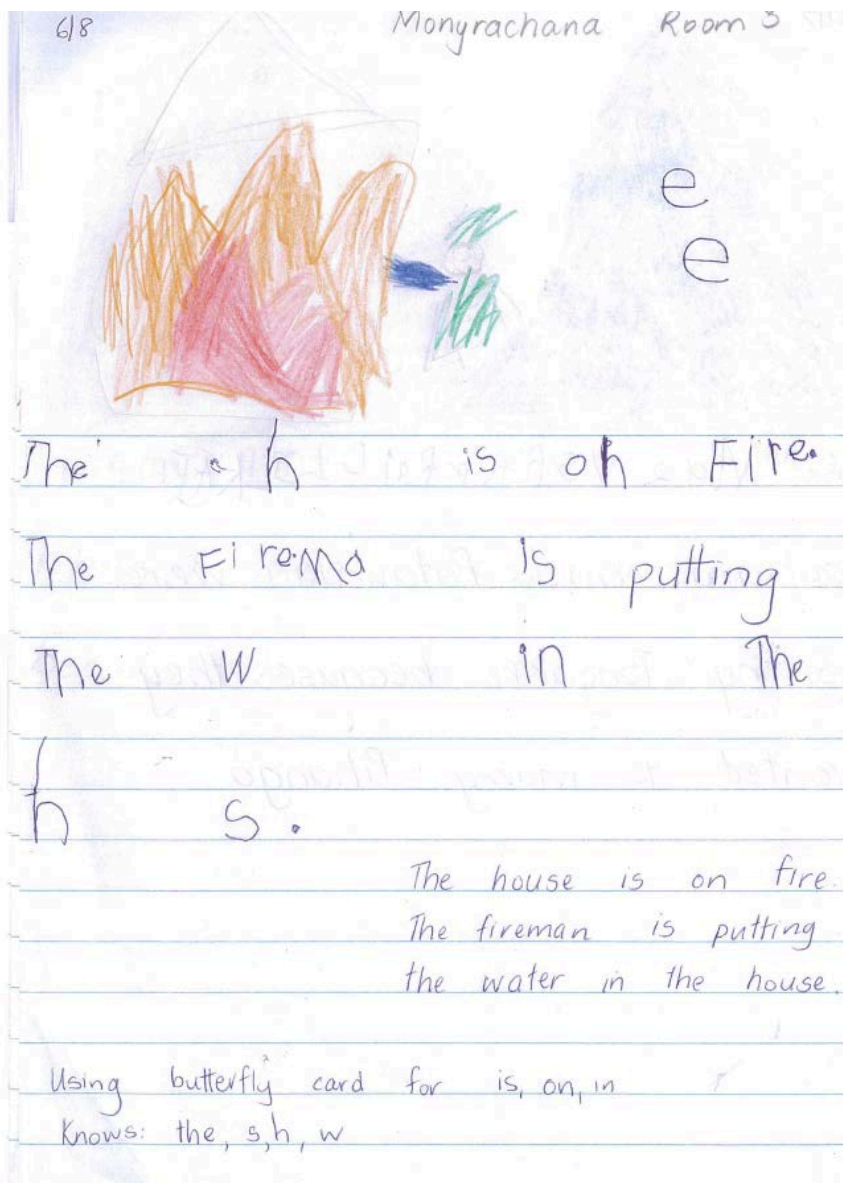 6/8
Monyrachana Room 3
e
e
The h is on Fire.
The Firema is putting
The w in The
h s.
The house is on fire.
The fireman is putting
the water in the house.
Using butterfly card for is, on, in
Knows: the, s, h, w